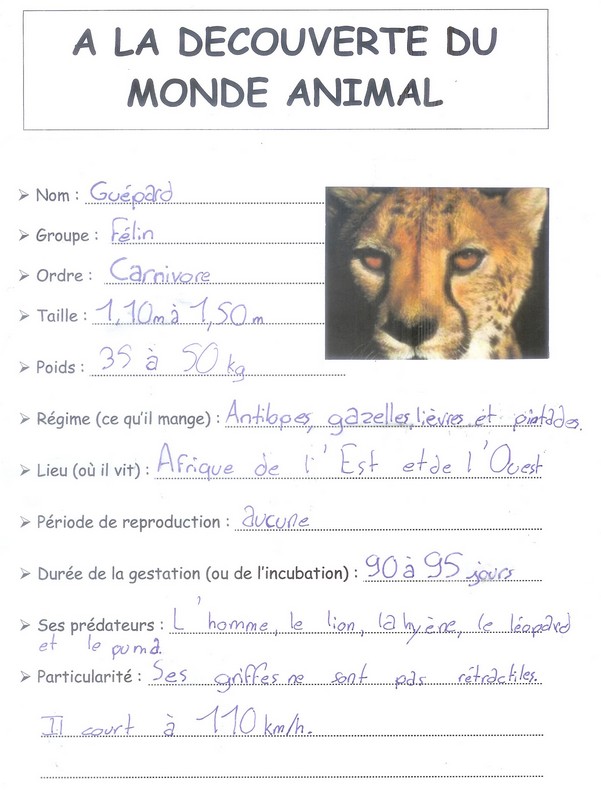 A LA DECOUVERTE DU
MONDE ANIMAL
➢ Nom : Guépard
➢ Groupe : Félin
➢ Ordre : Carnivore
➢ Taille : 1,10m à 1,50m
➢ Poids : 35 à 50 kg
➢ Régime (ce qu'il mange) : Antilopes, gazelles, lièvres et pintades.
➢ Lieu (où il vit) : Afrique de l'Est et de l'Ouest
➢ Période de reproduction : aucune
➢ Durée de la gestation (ou de l'incubation) : 90 à 95 jours
➢ Ses prédateurs : L'homme, le lion, la hyène, le léopard
et le puma.
➢ Particularité : Ses griffes ne sont pas rétractiles.
Il court à 110 km/h.